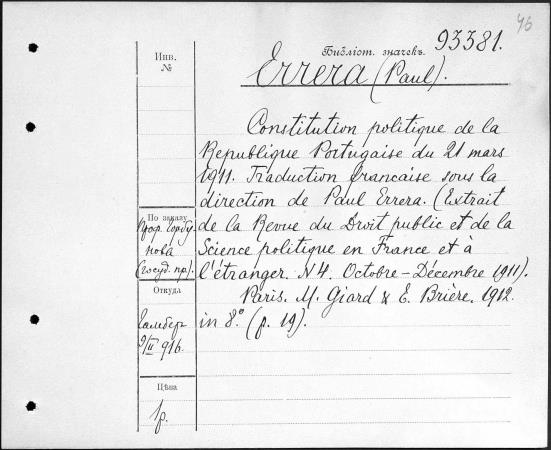 46
Библіот. значекъ. 93381.
Errera (Paul).
Инв.
№
Constitution politique de la
Republique Portugaise du 21 mars
1911. Traduction francaise sous la
direction de Paul Errera. (Extrait
de la Revue du Droit public et de la
Science politique en France et à
l'étranger. N 4. Octobre–Décembre 1911).
Paris. M. Giard & E. Brière. 1912.
in 8.° (p. 19).
По заказу
Проф. Горбу
нова
(госуд. пр).
Откуда
9/II 916.
Цѣна
1р.